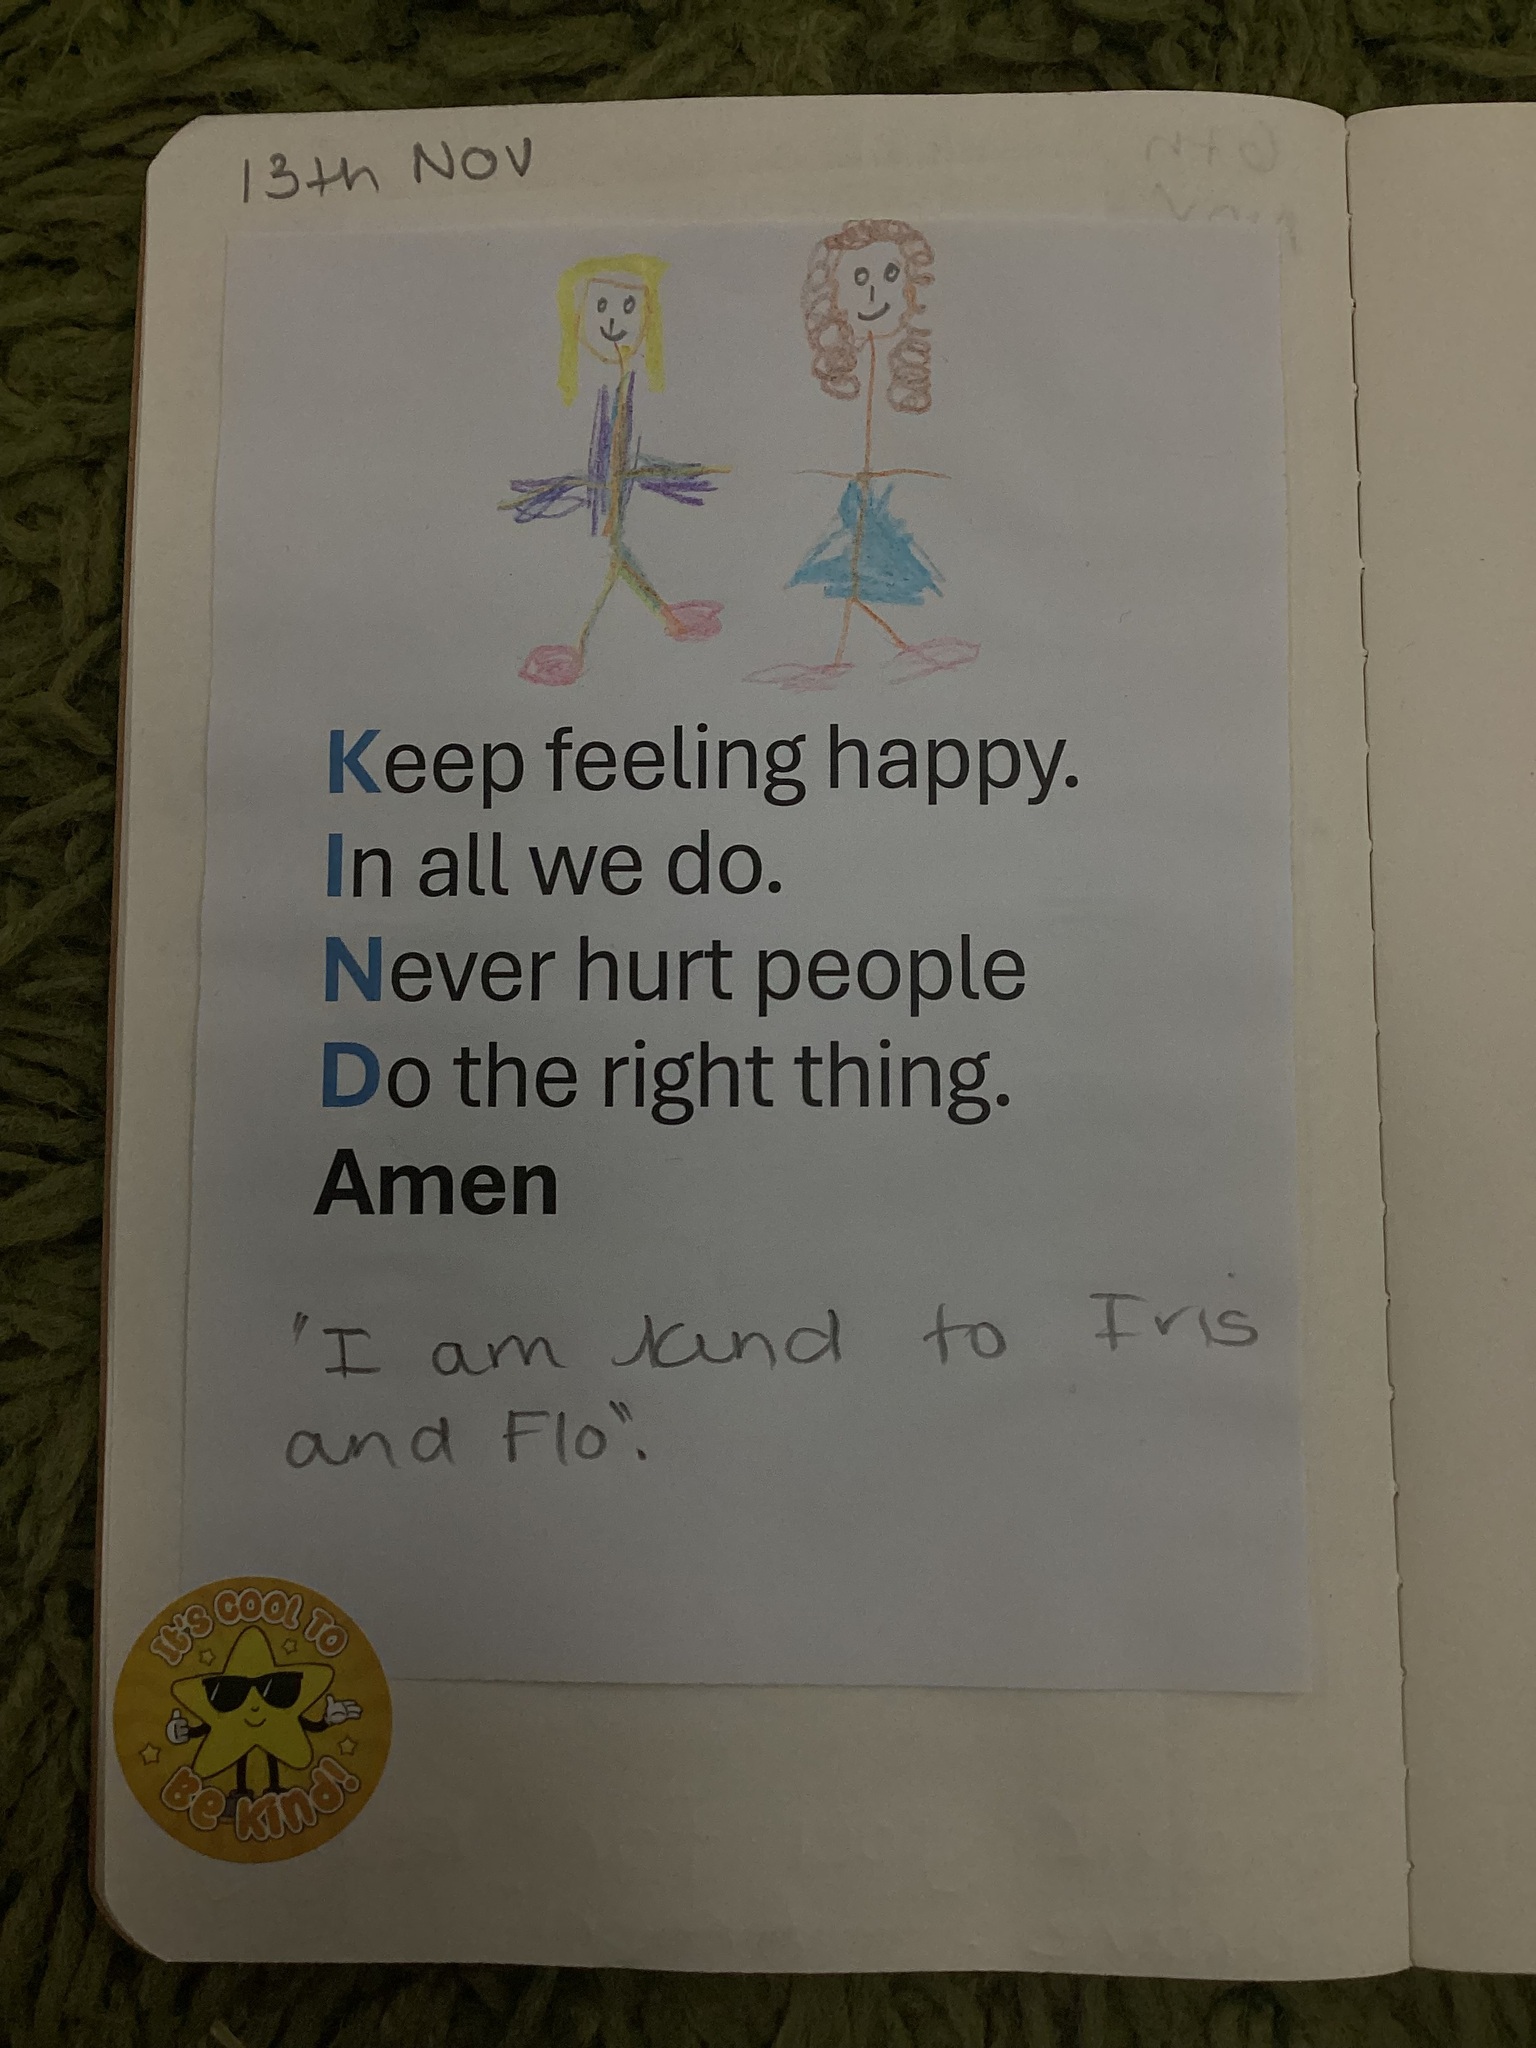 13th Nov
Keep feeling happy.
In all we do.
Never hurt people
Do the right thing.
Amen
"I am kind to Iris
and Flo".
IT'S COOL TO
BE KIND!